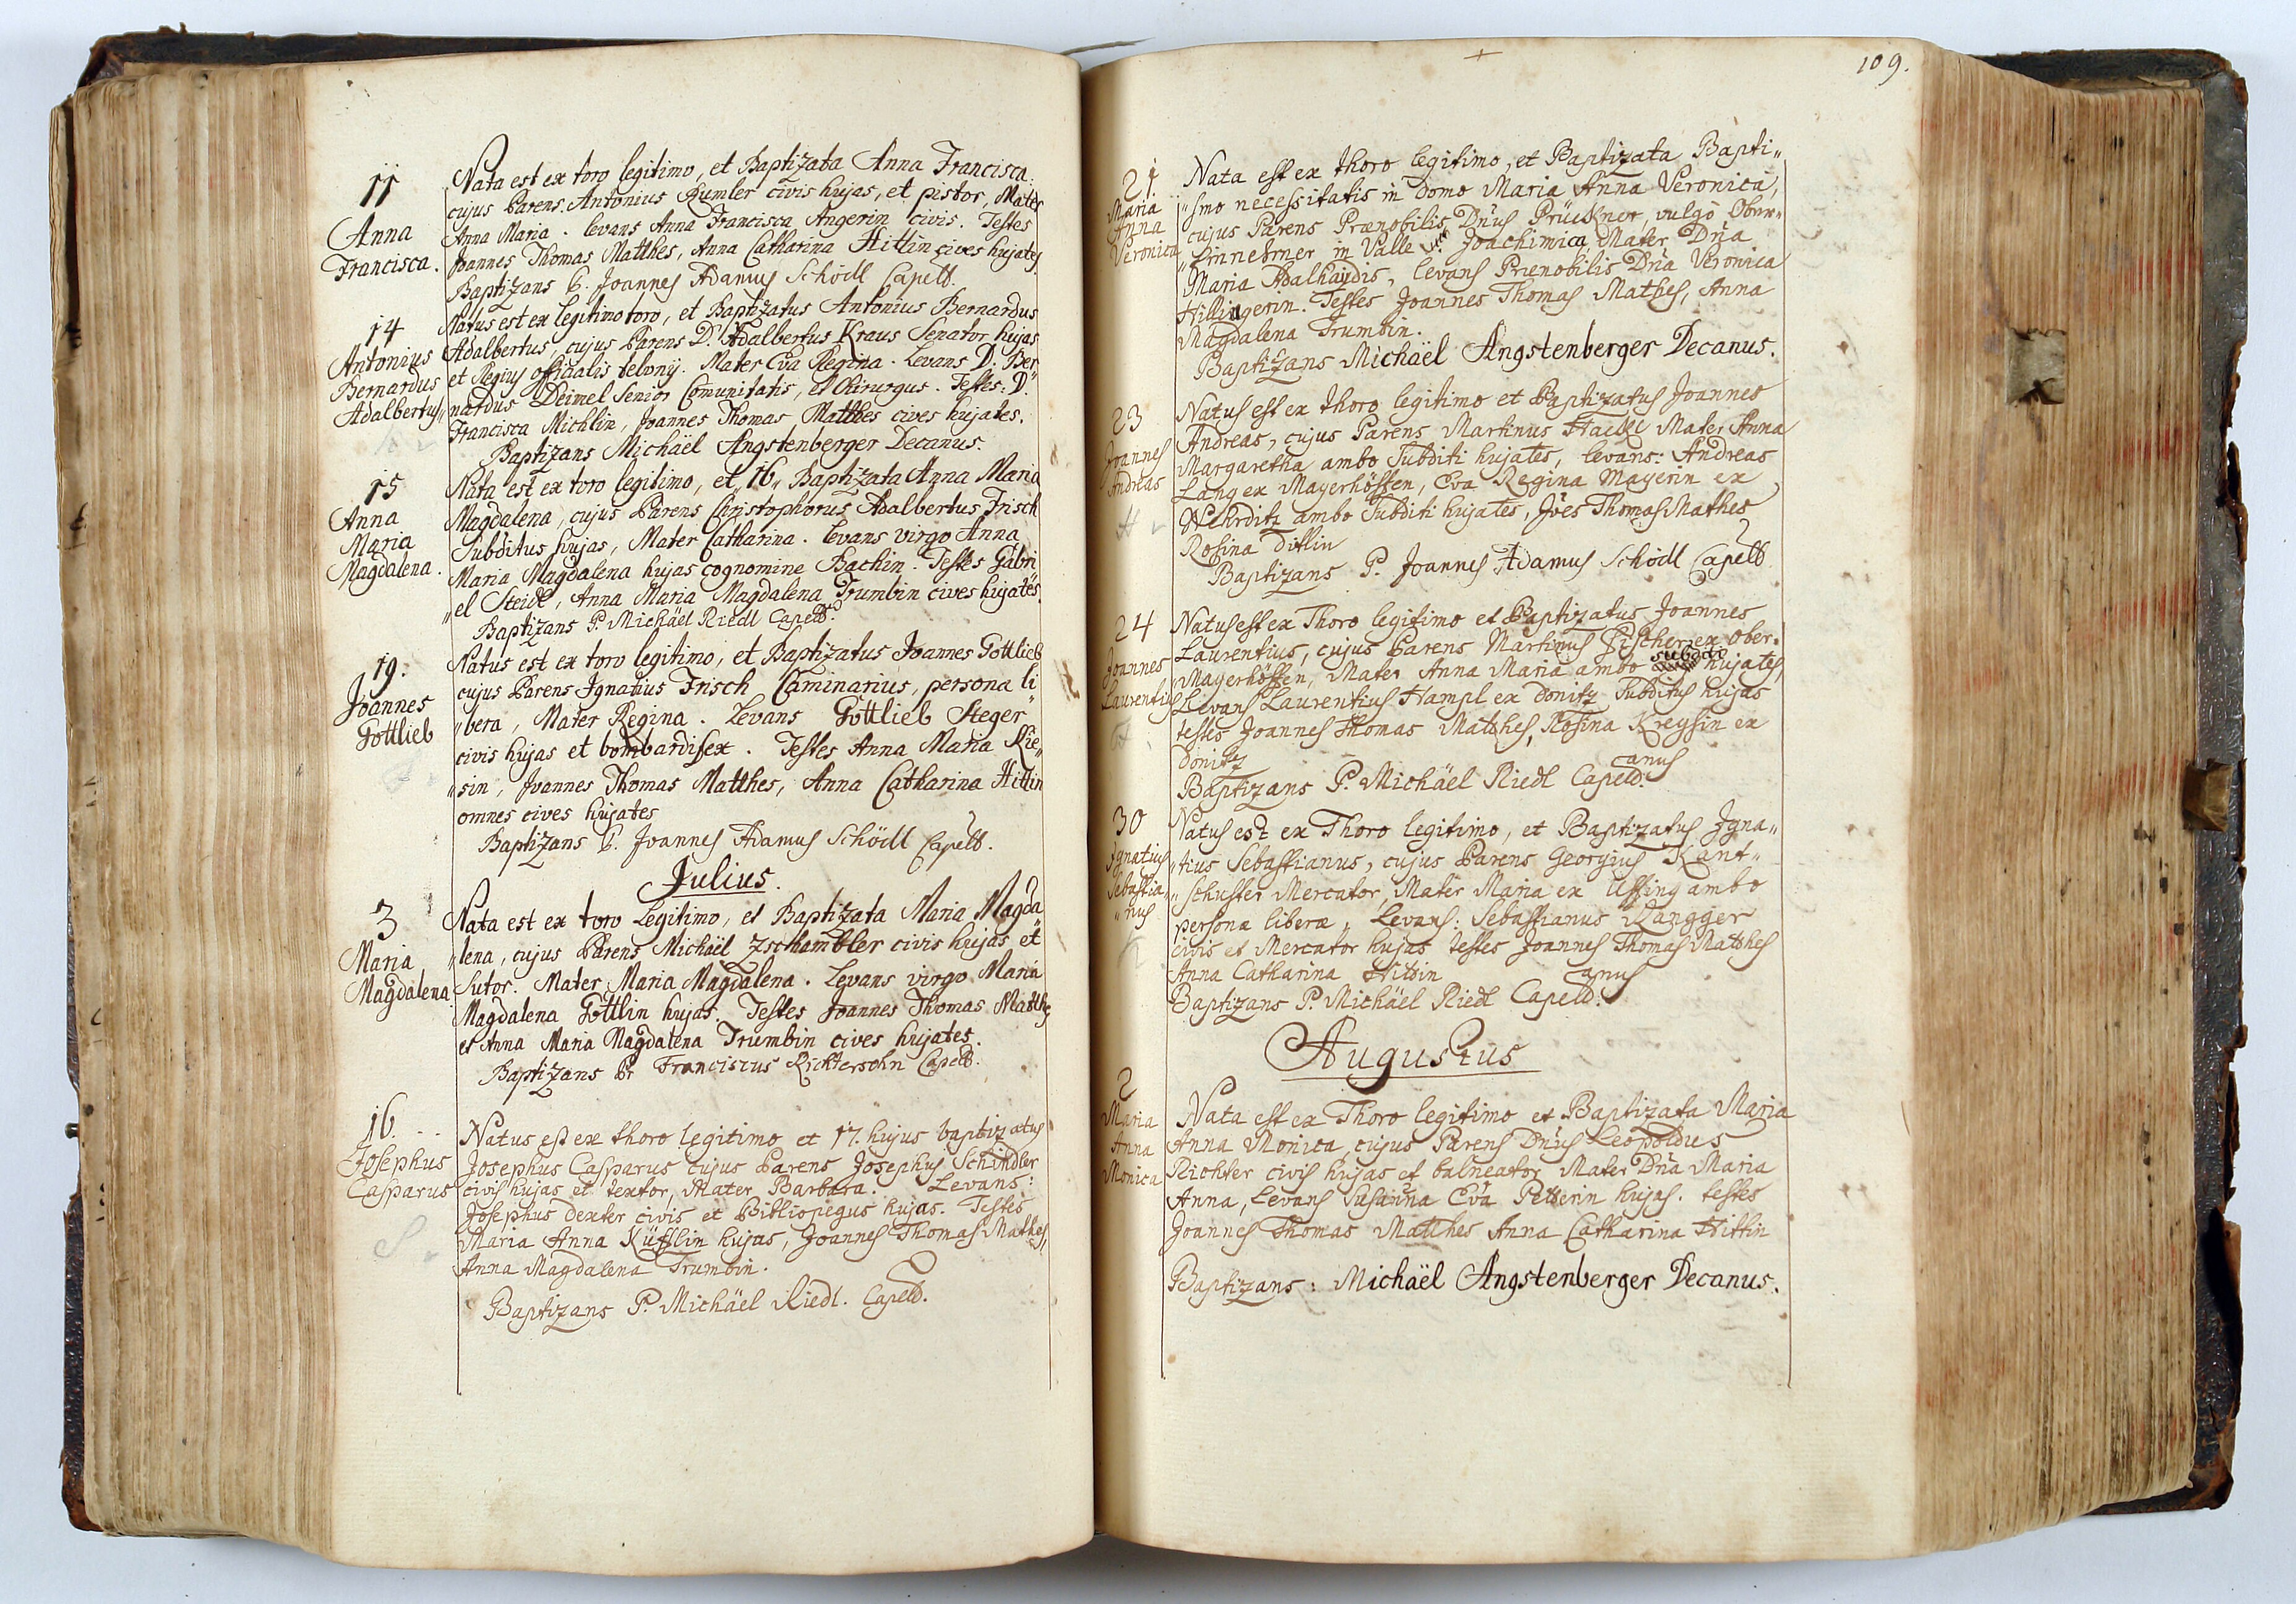 11
Anna
Francisca.
Nata est ex toro legitimo, et Baptizata Anna Francisca.
cujus Parens. Antonius Rumler civis hujas, et pistor, Mater
Anna Maria. levans Anna Francisca Angerin civis. Testes
Joannes Thomas Matthes, Anna Catharina Hittin cives hujates
Baptizans P. Joannes Adamus Schödl Capell.
14
Antonius
Bernardus
Adalbertus
Natus est ex legitimo toro, et Baptizatus Antonius Bernardus
Adalbertus, cujus Parens D. Adalbertus Kraus Senator hujas
et Regius officialis telonij. Mater Eva Regina. Levans D. Ber„
„nardus Deimel Senior Comunitatis, et Chirurgus. Testes: D.
Francisca Michlin, Joannes Thomas Matthes cives hujates.
Baptizans Michaël Angstenberger Decanus.
15
Anna
Maria
Magdalena.
Nata est ex toro legitimo, et „16„ Baptizata Anna Maria
Magdalena, cujus Parens Christophorus Adalbertus Frisch
Subditus hujas, Mater Catharina. Levans virgo Anna
Maria Magdalena hujas cognomine Bachin. Testes Gabri
„el Steidl, Anna Maria Magdalena Trumbin cives hujates.
Baptizans P. Michäel Riedl Capell.
19.
Joannes
Gottlieb
Natus est ex toro legitimo, et Baptizatus Joannes Gottlieb
cujus Parens Ignatius Frisch Caminarius, persona li
„bera, Mater Regina. Levans Gottlieb Steger
civis hujas et bombardifex. Testes Anna Maria Rie„
„sin, Joannes Thomas Matthes, Anna Catharina Hittin
omnes cives hujates
Baptizans P. Joannes Adamus Schödl Capell.
Julius.
3
Maria
Magdalena
Nata est ex toro Legitimo, et Baptizata Maria Magda
„lena, cujus Parens Michaël Zschambler civis hujas et
Sutor. Mater Maria Magdalena. Levans virgo Maria
Magdalena Göttlin hujas. Testes Joannes Thomas Matthes
et Anna Maria Magdalena Trumbin cives hujates.
Baptizans Pr Franciscus Richtersohn Capell.
16.
Josephus
Casparus
Natus est ex thoro legitimo et 17. hujus baptizatus
Josephus Casparus cujus Parens Josephus Schindler
civis hujas et textor, Mater Barbara. Levans:
Josephus Dexter civis et Bibliopegus hujas. Testes
Maria Anna Küfflin hujas, Joannes Thomas Mathes,
Anna Magdalena Trumbin.
Baptizans P. Michäel Riedl. Capell.
109.
21.
Maria
Anna
Veronica
Nata est ex thoro legitimo, et Baptizata Bapti„
„smo necessitatis in domo Maria Anna Veronica,
cujus Parens Prænobilis Dnus Prückner, vulgo Ober„
„Einnehmer in Valle Joachimica, Mater Dna
Maria Adalhaydis, levans Prænobilis Dna Veronica
Hillingerin. Testes Joannes Thomas Mathes, Anna
Magdalena Trumbin.
Baptizans Michaël Angstenberger Decanus.
23
Joannes
Andreas
Natus est ex thoro legitimo et Baptizatus Joannes
Andreas, cujus Parens Martinus Mater Anna
Margaretha ambo Subditi hujates, levans: Andreas
Lang ex Mayerhöffen, Eva Regina Mayerin ex
Wehrditz ambo Subditi hujates, Jões Thomas Mathes
Rosina Ditlin
Baptizans P. Joannes Adamus Schödl Capell.
24
Joannes
Laurentius
Natus est ex Thoro legitimo et Baptizatus Joannes
Laurentius, cujus Parens Martinus Fischer ex Ober„
„Mayerhöffen, Mater Anna Maria ambo subditi hujates,
Levans Laurentius Hampl ex Donitz Subditus hujas
testes Joannes Thomas Matthes, Rosina Kreysin ex
Donitz
Baptizans P. Michäel Riedl Capell:anus
30
Ignatius
Sebastia„
„nus
Natus est ex Thoro legitimo, et Baptizatus Igna„
„tius Sebastianus, cujus Parens Georgius Kant„
„schuster Mercator, Mater Maria ex Ussing ambo
personæ liberæ, Levans: Sebastianus Wangger
civis et Mercator hujas testes Joannes Thomas Matthes
Anna Catharina Hittin
Baptizans P. Michäel Riedl Capell:anus
Augustus
2
Maria
Anna
Monica
Nata est ex Thoro legitimo et Baptizata Maria
Anna Monica, cujus Parens Dnus Leopoldus
Richter civis hujas et balneator, Mater Dna Maria
Anna, Levans Susanna Eva Petterin hujas. testes
Joannes Thomas Matthes Anna Catharina Hittin
Baptizans: Michaël Angstenberger Decanus.